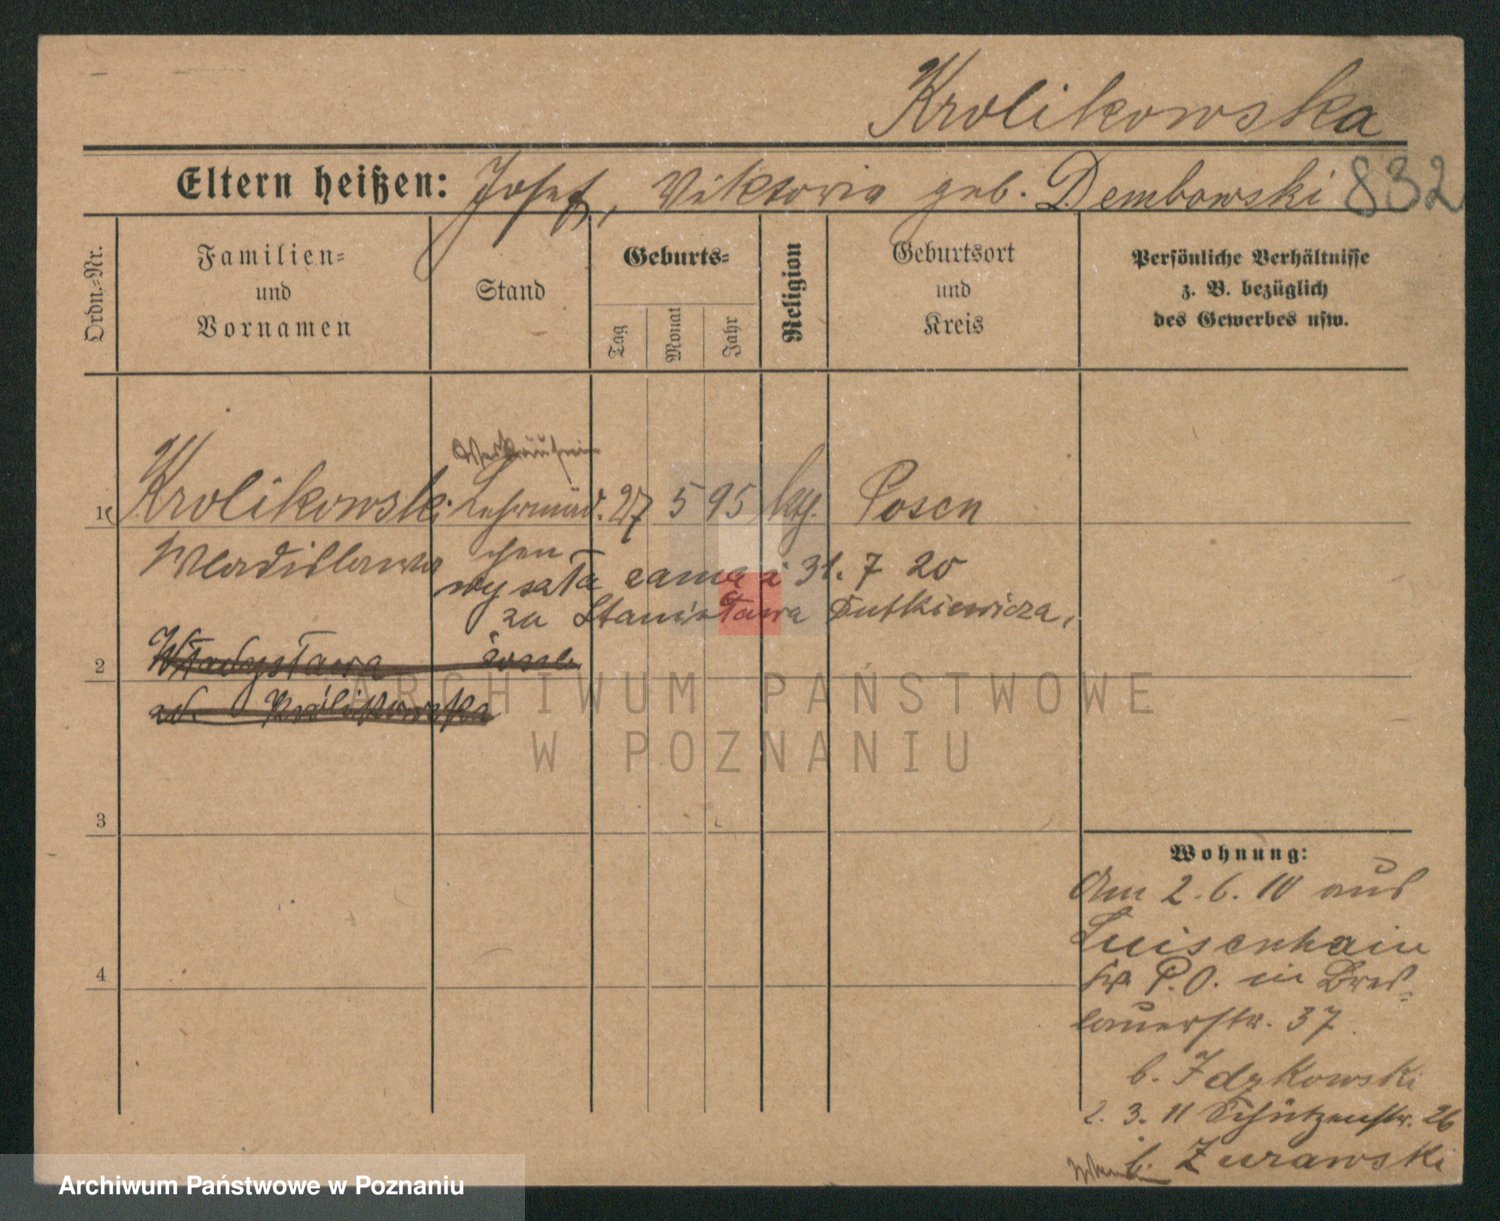 Krolikowska
Eltern heißen: Josef, Viktoria geb. Dembowski 832
Ordn.-Nr.
Familien-
und
Vornamen
Stand
Geburts-
Tag
Monat
Jahr
Religion
Geburtsort
und
Kreis
Persönliche Verhältnisse
z. B. bezüglich
des Gewerbes usw.
Verkäuferin
1 Krolikowski Lehrmäd. 27 5 95 kth. Posen
Wladislawa chen
wyszła zamąż 31. 7 20
za Stanisława Rutkiewicza,
2 Władysława
Królikowska
3
4
Wohnung:
Am 2. 6. 10 aus
Luisenhain
Kr. P. O. in Bres-
lauerstr. 37.
b. Idzkowski
2. 3. 11 Schützenstr. 26
b. Zurawski
ARCHIWUM PAŃSTWOWE
W POZNANIU
Archiwum Państwowe w Poznaniu